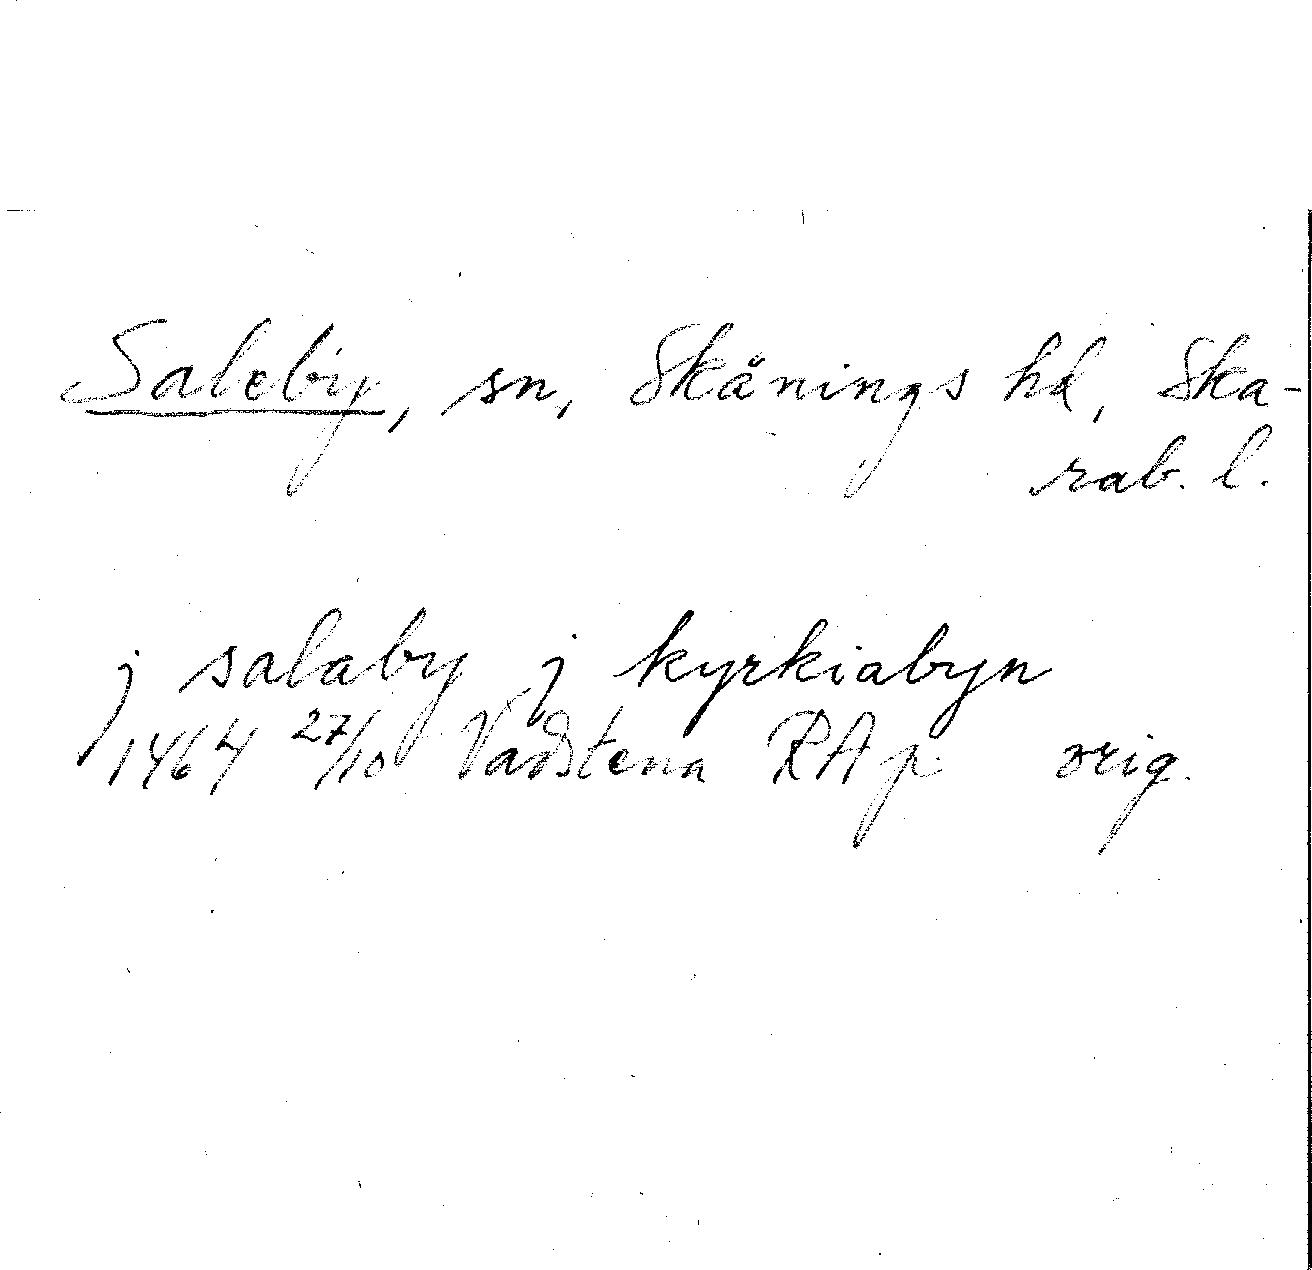 Saleby, sn, Skånings hd, Ska-
rab. l.
j salaby j kyrkiabyn
1464 27/10 Vadstena RAp orig.